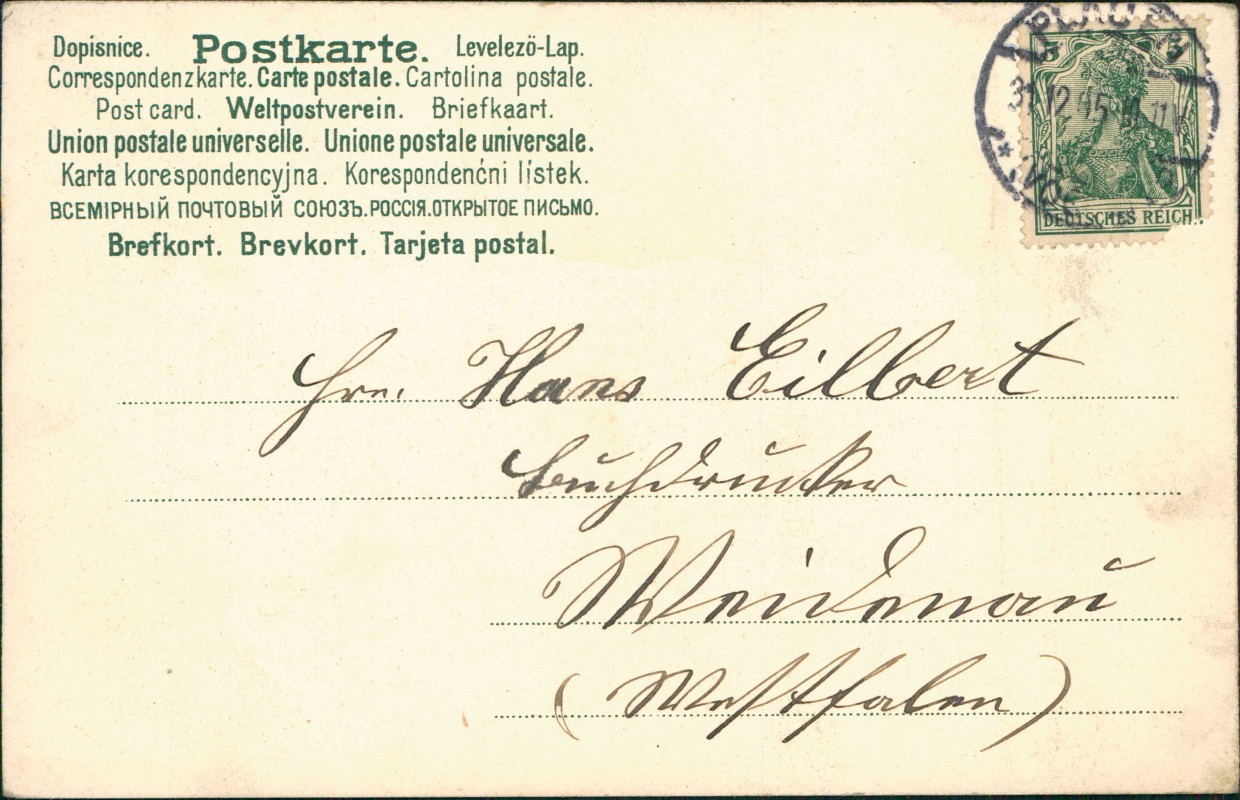 Dopisnice. Postkarte. Levelezö-Lap.
Correspondenzkarte. Carte postale. Cartolina postale.
Post card. Weltpostverein. Briefkaart.
Union postale universelle. Unione postale universale.
Karta korespondencyjna. Korespondenćni listek.
ВСЕМІРНЫЙ ПОЧТОВЫЙ СОЮЗЪ.РОССІЯ.ОТКРЫТОЕ ПИСЬМО.
Brefkort. Brevkort. Tarjeta postal.
PLAUEN
31.12.
5 5
DEUTSCHES REICH
Hrn. Hans Eilbert
Buchdrucker
Weidenau
(Westfalen)